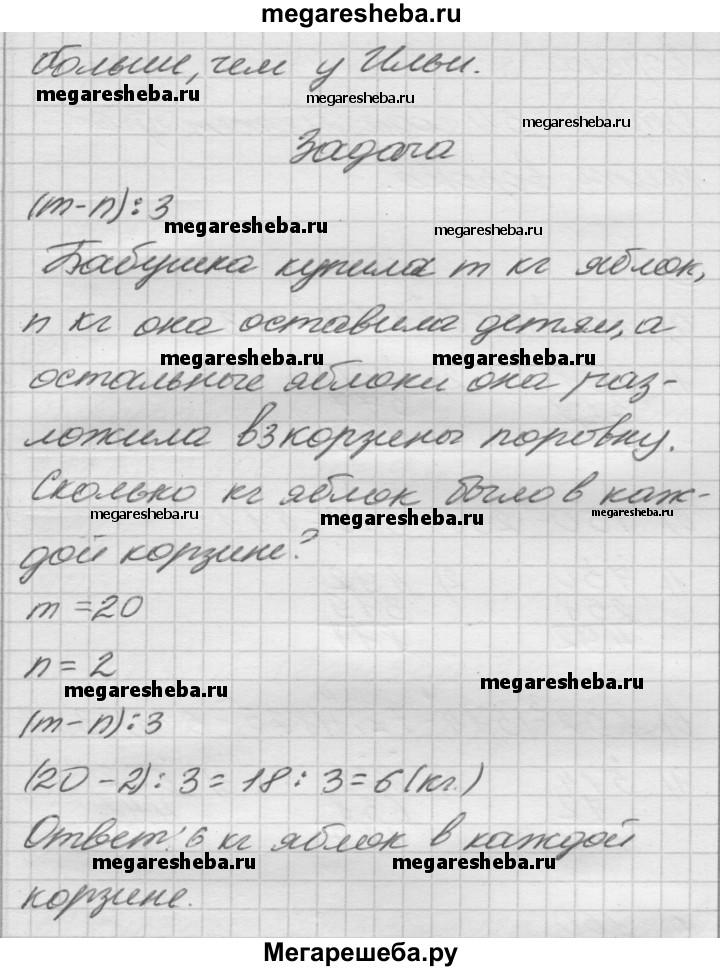 megaresheba.ru
больше, чем у Ильи.
megaresheba.ru megaresheba.ru
megaresheba.ru
Задача
(m-n):3
megaresheba.ru megaresheba.ru
Бабушка купила m кг яблок,
n кг она оставила детям, а
megaresheba.ru megaresheba.ru
остальные яблоки она раз-
ложила в 3 корзины поровну.
Сколько кг яблок было в каж-
megaresheba.ru megaresheba.ru megaresheba.ru
дой корзине?
m = 20
n = 2
megaresheba.ru megaresheba.ru
(m-n):3
(20-2):3=18:3=6(кг.)
Ответ: 6 кг яблок в каждой
megaresheba.ru megaresheba.ru
корзине.
Мегарешеба.ру